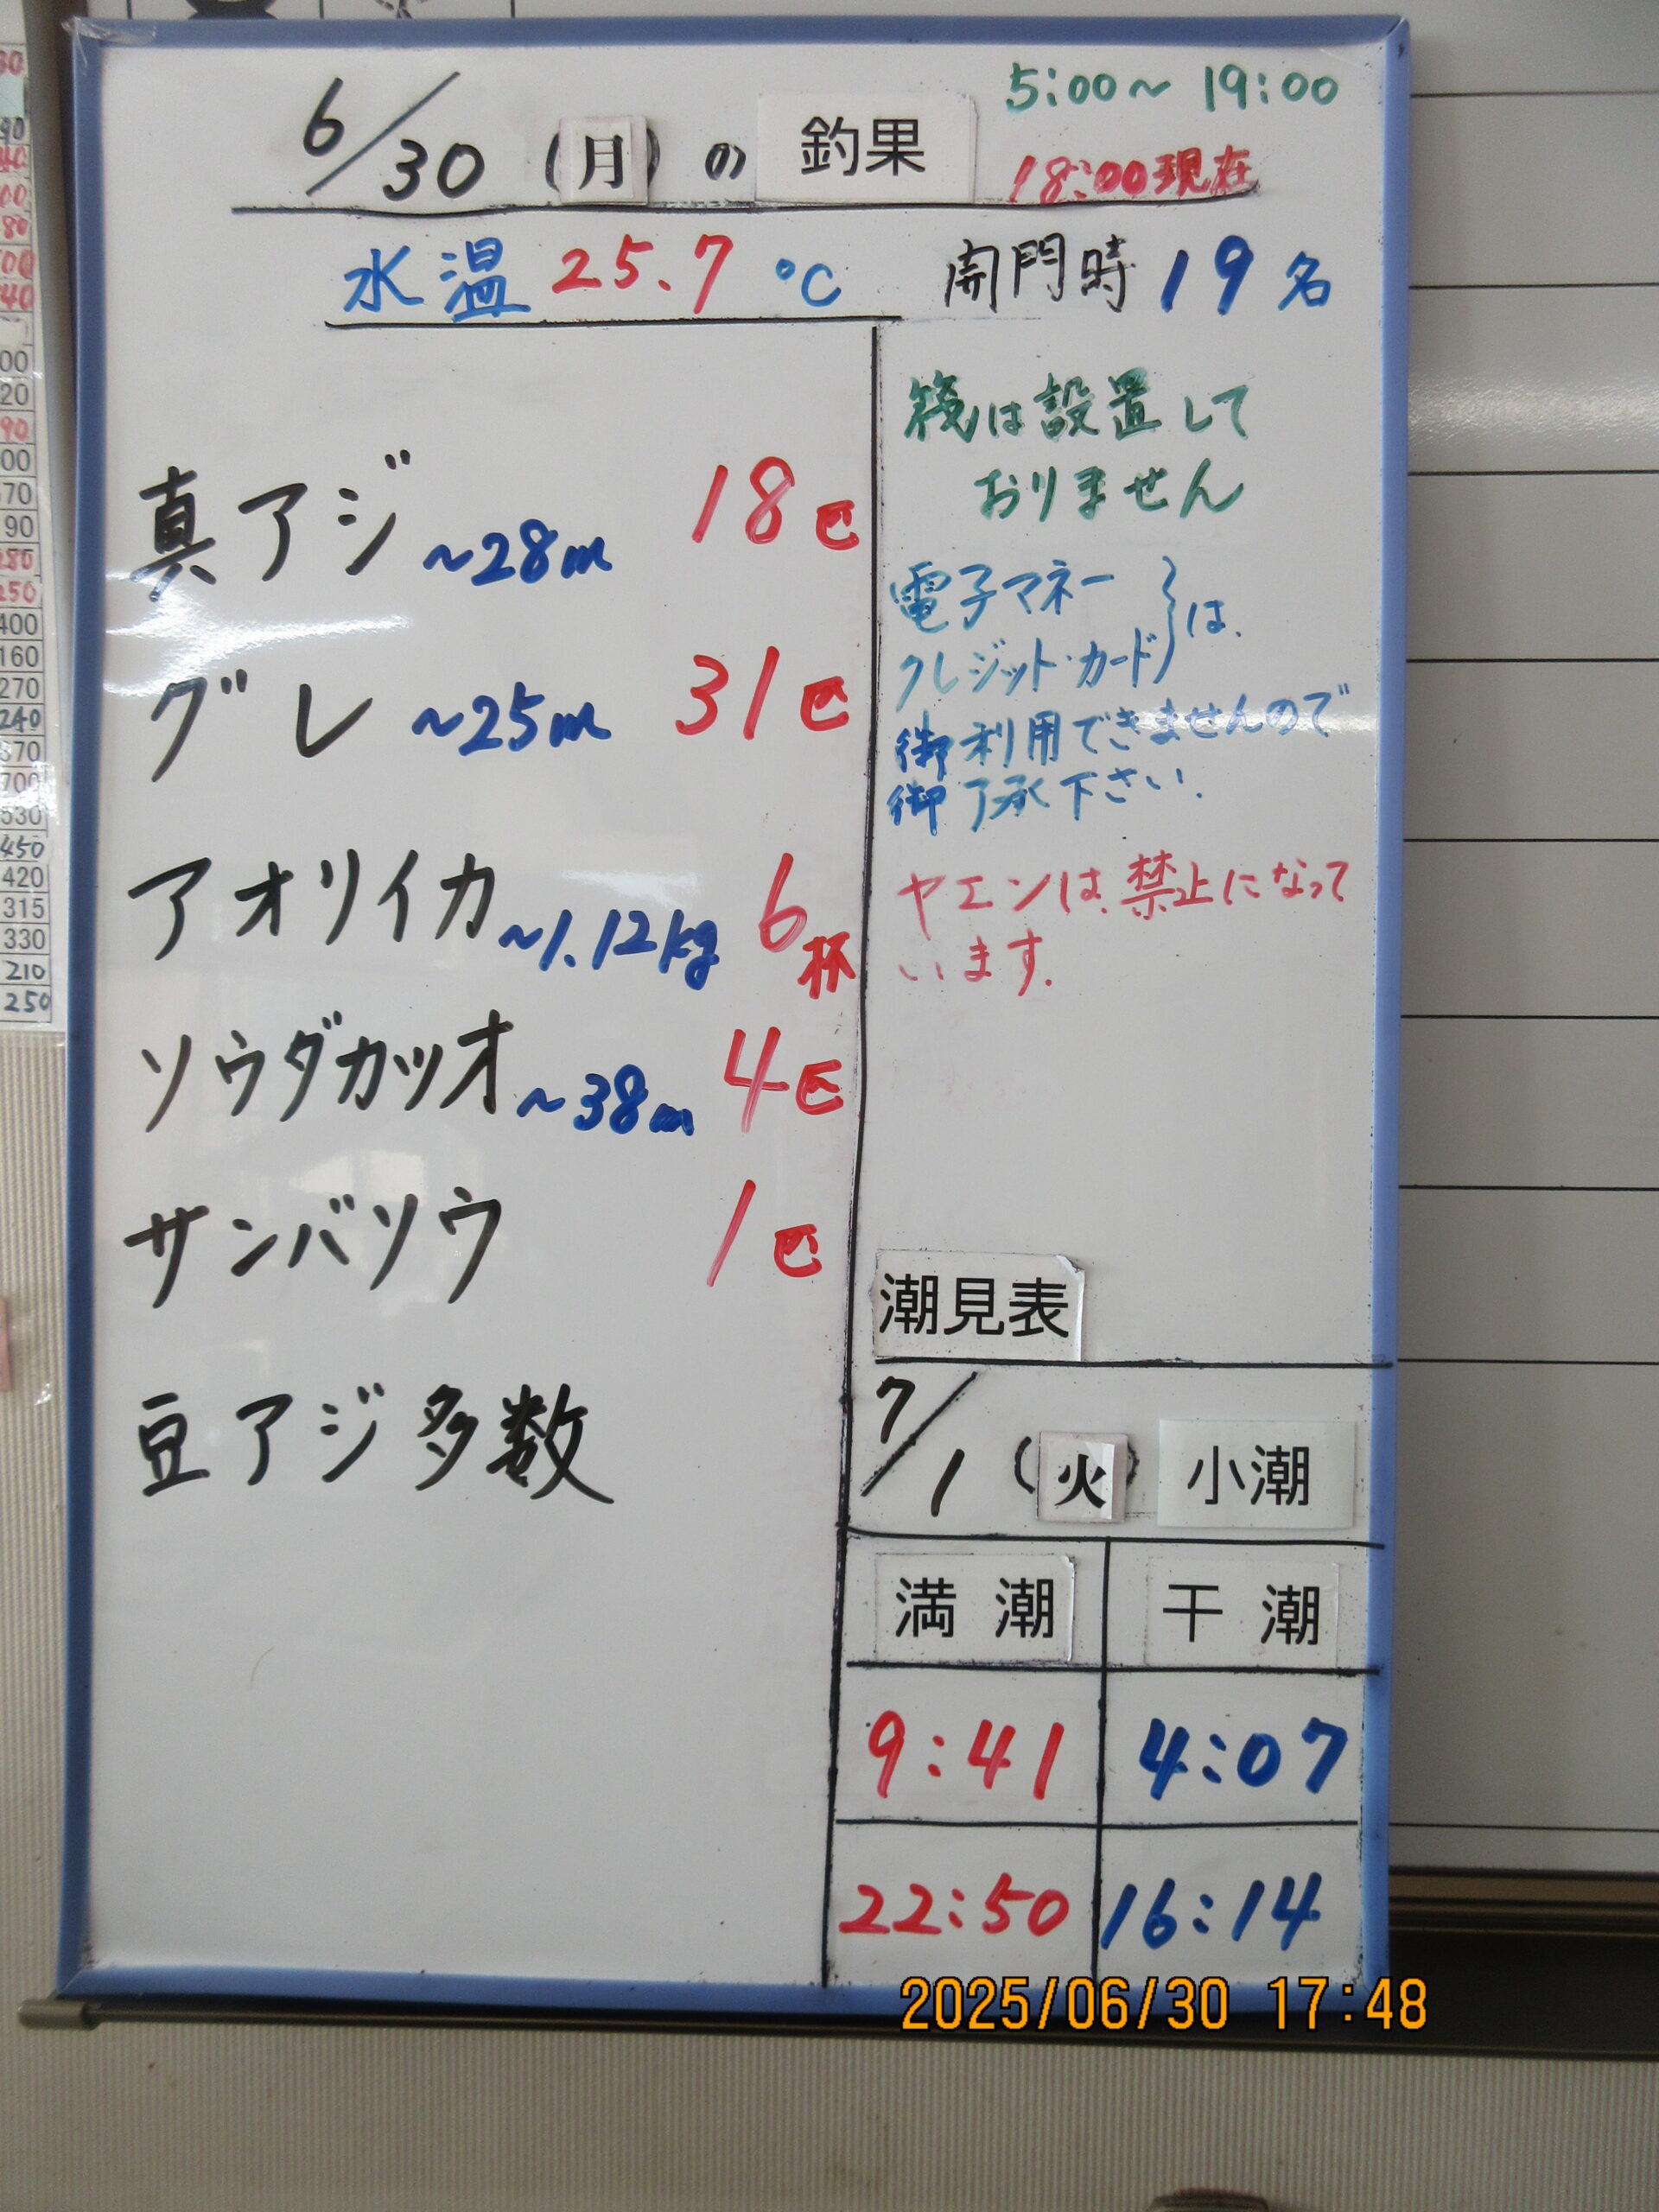 6/30(月)の釣果
5:00～19:00
18:00現在
水温 25.7℃ 開門時 19名
真アジ ~28㎝ 18匹
グレ ~25㎝ 31匹
アオリイカ ~1.12kg 6杯
ソウダカツオ ~38㎝ 4匹
サンバソウ 1匹
豆アジ多数
筏は設置して
おりません
電子マネー
クレジット・カード}は、
御利用できませんので
御了承下さい.
ヤエンは、禁止になって
います.
潮見表
7/1(火) 小潮
満潮 干潮
9:41 4:07
22:50 16:14
2025/06/30 17:48
90
00
20
90
00
70
90
280
250
400
160
270
240
670
700
530
450
420
315
330
210
250